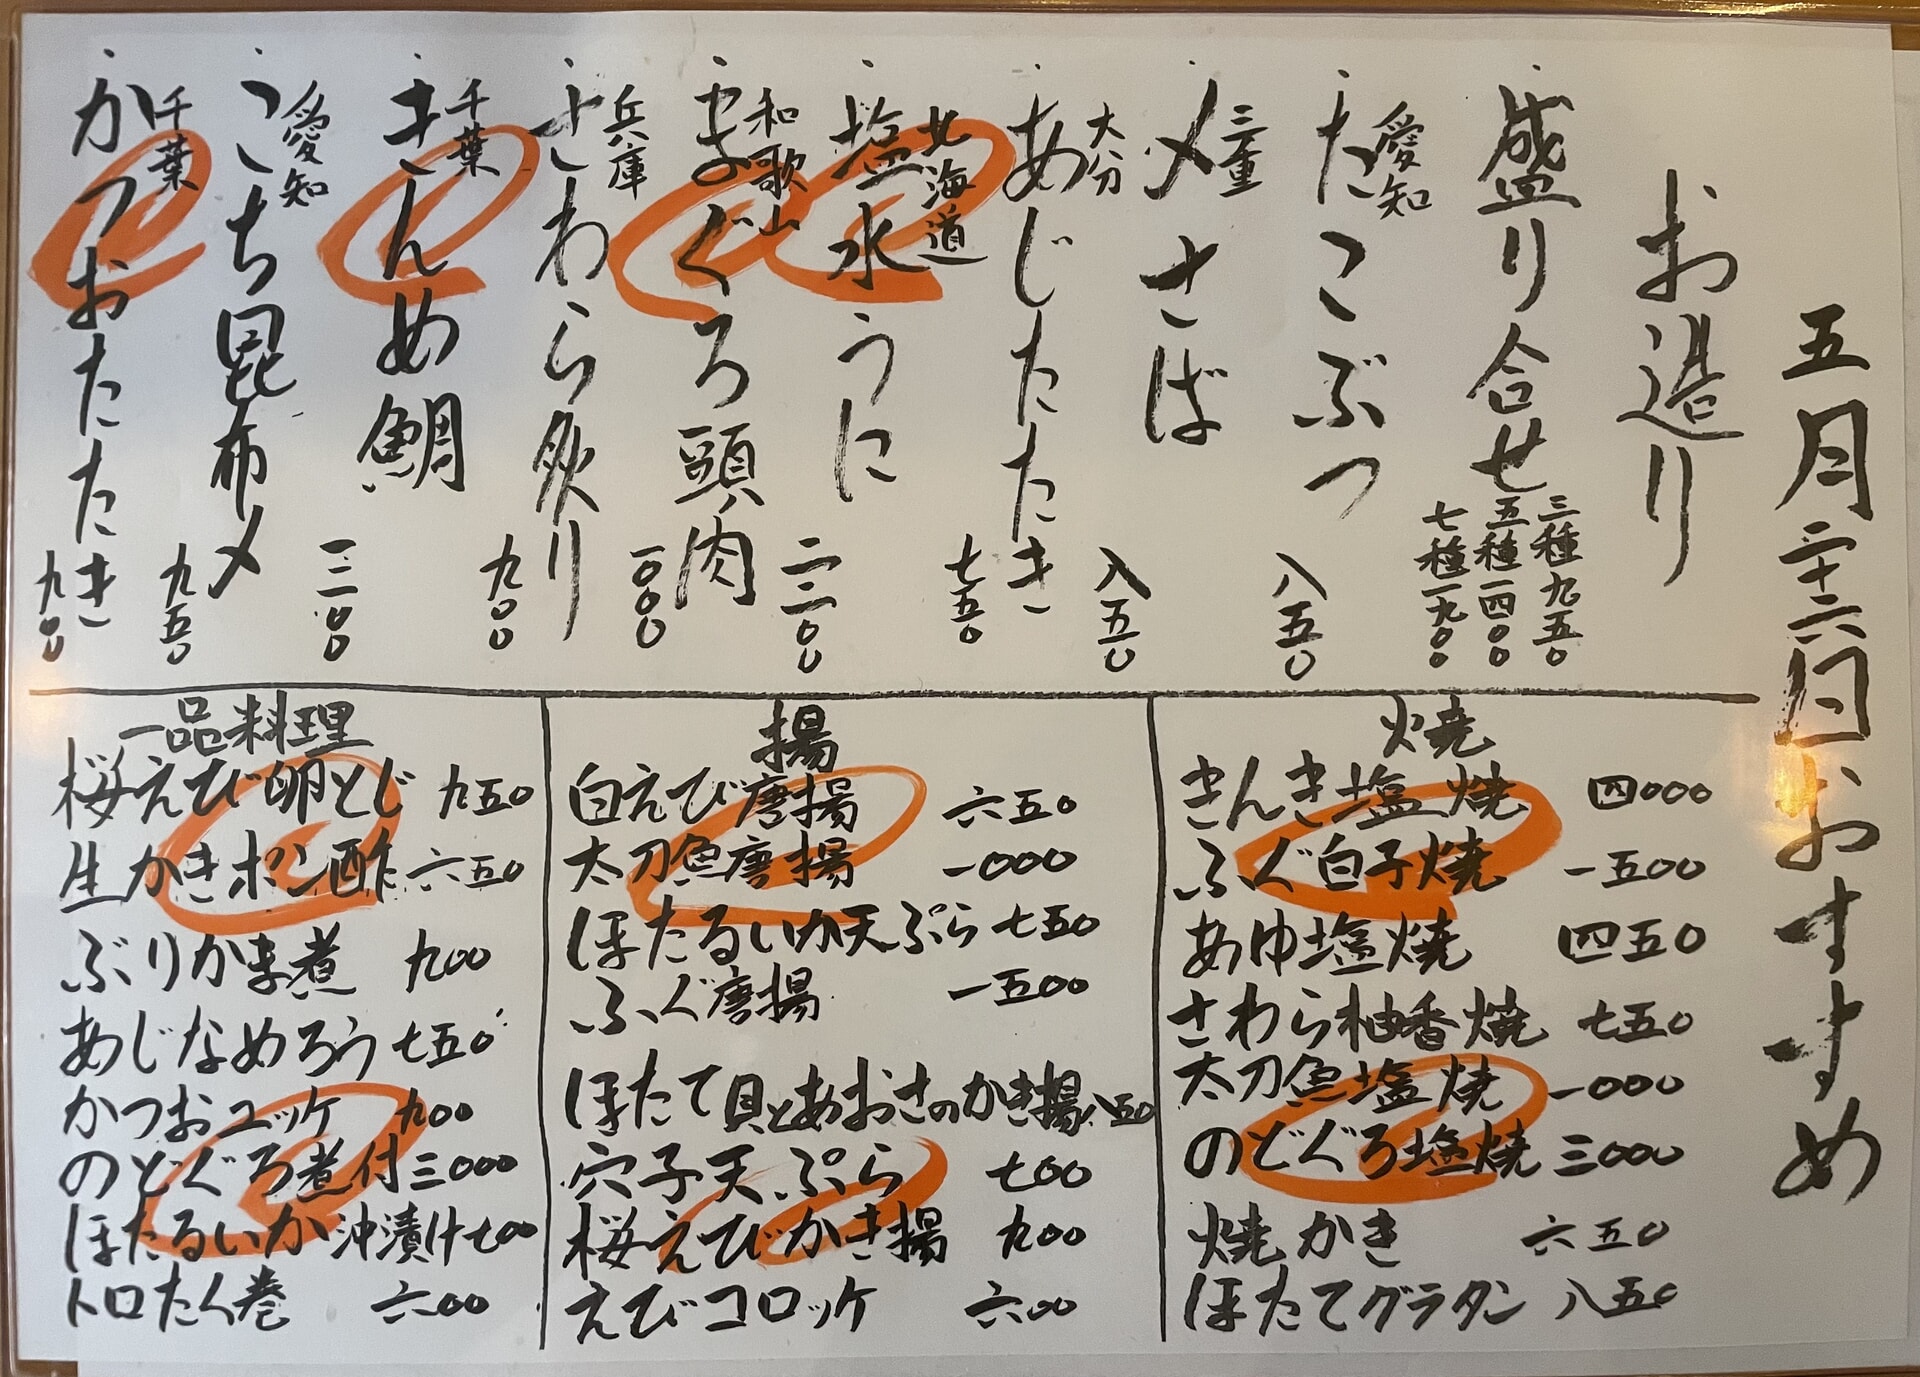 五月二十六日おすすめ
お造り
盛り合せ 三種九五〇
五種一四〇〇
七種一九〇〇
愛知
たこぶつ 八五〇
三重
〆さば 八五〇
大分
あじたたき 七五〇
北海道
塩水うに 二二〇〇
和歌山
まぐろ頭肉 一〇〇〇
兵庫
さわら炙り 九〇〇
千葉
きんめ鯛 一三〇〇
愛知
こち昆布〆 九五〇
千葉
かつおたたき 九〇〇
焼
きんき塩焼 四〇〇〇
ふぐ白子焼 一五〇〇
あゆ塩焼 四五〇
さわら柚香焼 七五〇
太刀魚塩焼 一〇〇〇
のどぐろ塩焼 三〇〇〇
焼かき 六五〇
ほたてグラタン 八五〇
揚
白えび唐揚 六五〇
太刀魚唐揚 一〇〇〇
ほたるいか天ぷら 七五〇
ふぐ唐揚 一五〇〇
ほたて貝とあおさのかき揚 八五〇
穴子天ぷら 七〇〇
桜えびかき揚 九〇〇
えびコロッケ 六〇〇
一品料理
桜えび卵とじ 九五〇
生かきポン酢 六五〇
ぶりかま煮 九〇〇
あじなめろう 七五〇
かつおユッケ 九〇〇
のどぐろ煮付 三〇〇〇
ほたるいか沖漬け 七〇〇
トロたく巻 六〇〇